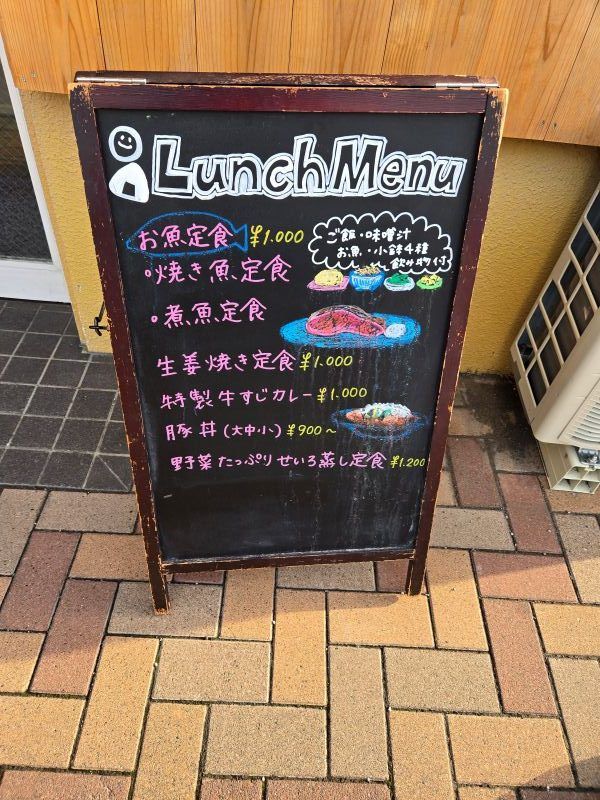 Lunch Menu
お魚定食 ¥1.000
ご飯・味噌汁
お魚・小鉢4種
飲み物付
・焼き魚定食
・煮魚定食
生姜焼き定食 ¥1.000
特製牛すじカレー ¥1.000
豚丼(大中小) ¥900~
野菜たっぷりせいろ蒸し定食 ¥1.200